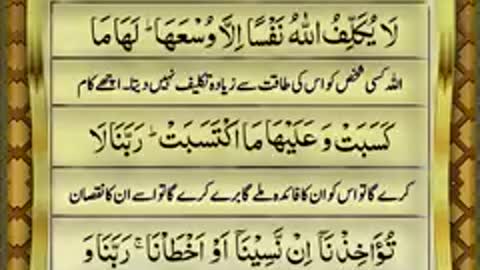 لَا يُكَلِّفُ اللّٰهُ نَفْسًا اِلَّا وُسْعَهَا ؕ لَهَا مَا
اللہ کسی شخص کو اس کی طاقت سے زیادہ تکلیف نہیں دیتا۔ اچھے کام
كَسَبَتْ وَ عَلَيْهَا مَا اكْتَسَبَتْ ؕ رَبَّنَا لَا
کرے گا تو اس کو ان کا فائدہ ملے گا برے کرے گا تو اسے ان کا نقصان
تُؤَاخِذْنَاۤ اِنْ نَّسِيْنَاۤ اَوْ اَخْطَاْنَا ۚ رَبَّنَا وَ